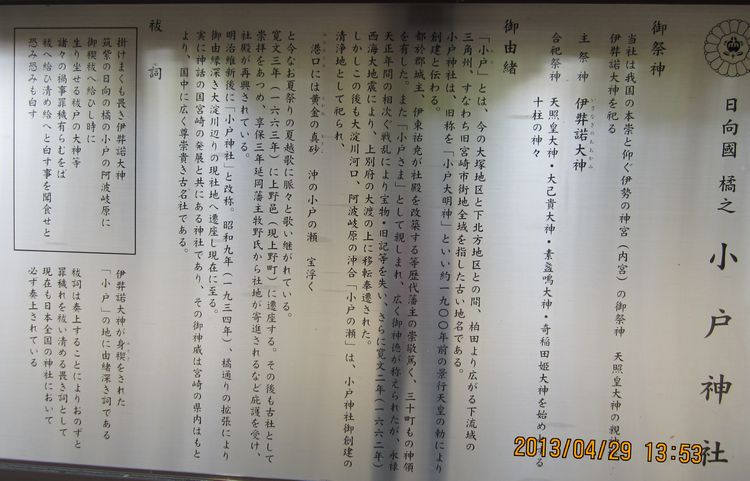 日向國 橘之 小戸神社
御祭神
当社は我国の本崇と仰ぐ伊勢の神宮（内宮）の御祭神 天照皇大神の親
伊弉諾大神を祀る
主祭神 伊弉諾大神
いざなぎのおおかみ
合祀祭神 天照皇大神・大己貴大神・素盞鳴大神・奇稲田姫大神を始め る
十柱の神々
御由緒
「小戸」とは、今の大塚地区と下北方地区との間、柏田より広がる下流域の
三角州、すなわち旧宮崎市街地全域を指した古い地名である。
小戸神社は、旧称を「小戸大明神」といい約一九〇〇年前の景行天皇の勅により
創建と伝わる。
都於郡城主、伊東祐尭が社殿を改築する等歴代藩主の崇敬篤く、三十町もの神領
を有した。また「小戸さま」として親しまれ、広く御神徳が称えられたが、永禄
天正年間の相次ぐ戦乱により宝物・旧記等を失い、さらに寛文二年（一六六二年）
西海大地震により、上別府の大渡の上に移転奉遷された。
しかしこの後も大淀川河口、阿波岐原の沖合「小戸の瀬」は、小戸神社御創建の
清浄地として祀られ、
港口には黄金の真砂 沖の小戸の瀬 宝浮く
と今なお夏祭りの夏越歌に脈々と歌い継がれている。
寛文三年（一六六三年）に上野邑（現上野町）に遷座する。その後も古社として
崇拝をあつめ、享保三年延岡藩主牧野氏から社地が寄進されるなど庇護を受け、
社殿が再興されている。
明治維新後に「小戸神社」と改称。昭和九年（一九三四年）、橘通りの拡張により
御由縁深き大淀川辺りの現社地へ遷座し現在に至る。
実に神話の国宮崎の発展と共にある神社であり、その御神威は宮崎の県内はもと
より、国中に広く尊崇貴き古名社である。
祓詞
掛けまくも畏き伊弉諾大神
筑紫の日向の橘の小戸の阿波岐原に
御禊祓へ給ひし時に
生り坐せる祓戸の大神等
諸々の禍事罪穢有らむをば
祓へ給ひ清め給へと白す事を聞食せと
恐み恐みも白す
伊弉諾大神が身禊をされた
「小戸」の地に由緒深き詞である
祓詞は奏上することによりおのずと
罪穢れを祓い清める畏き詞として
現在も日本全国の神社において
必ず奏上されている
2013/04/29 13:53